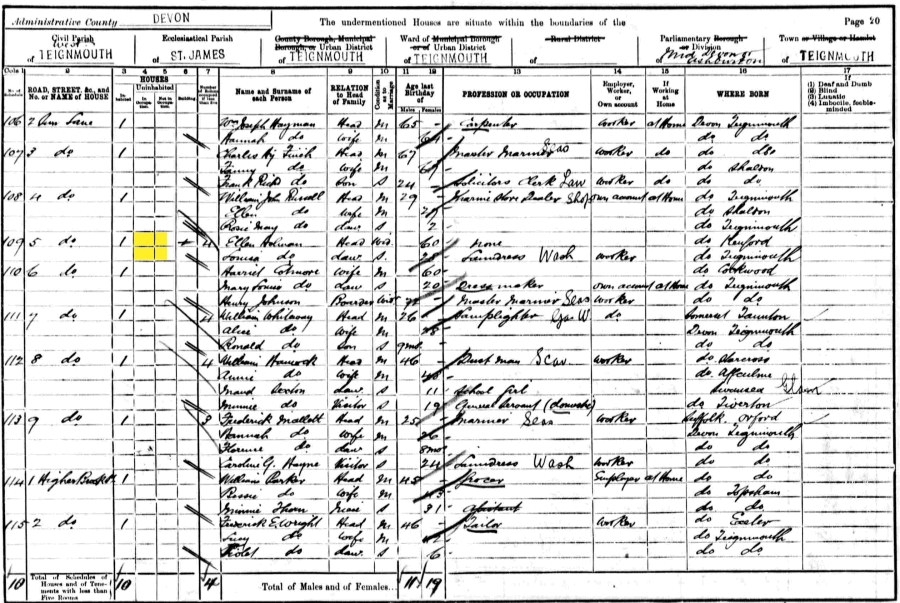 Administrative County DEVON The undermentioned Houses are situate within the boundaries of the Page 20
Civil Parish Ecclesiastical Parish County Borough, Municipal Borough, or Urban District Ward of Municipal Borough or of Urban District Rural District Parliamentary Borough or Division Town or Village or Hamlet
West
of TEIGNMOUTH of ST. JAMES of TEIGNMOUTH of TEIGNMOUTH of of Mid Devon or Ashburton of TEIGNMOUTH
Cols 1 2 3 4 5 6 7 8 9 10 11 12 13 14 15 16 17
No. of Schedule ROAD, STREET, &c., and No. or NAME of HOUSE HOUSES Inhabited Uninhabited In Occupation Not in Occupation Building Name and Surname of each Person RELATION to Head of Family Condition as to Marriage Age last Birthday of Males Females PROFESSION OR OCCUPATION Employer, Worker, or Own account If Working at Home WHERE BORN If (1) Deaf and Dumb (2) Blind (3) Lunatic (4) Imbecile, feeble-minded
106 2 Lane 1 Wm Joseph Hayman Head M 65 - Carpenter Worker at Home Devon Teignmouth
Hannah do Wife M do do
107 3 do 1 Charles Hy Finch Head M 67 Master Mariner Sea Worker do do do
Fanny do Wife M do Shaldon
Frank Rich do Son S 24 - Solicitors Clerk Law Worker do do do
108 4 do 1 William John Russell Head M 29 - Marine Store Dealer Shop own account at Home do Teignmouth
Ellen do Wife M do Shaldon
Rosie May do daur S 2 do Teignmouth
109 5 do 1 4 Ellen Holman Head Wid 60 - None do Kenford
Louisa do daur S 28 Laundress Wash Worker do Teignmouth
110 6 do 1 Harriet Wife M 60 - do Cockwood
Mary Louise do daur S 20 - Dressmaker own account at Home do Teignmouth
Henry Johnson Boarder Wid 72 - Master Mariner Sea Worker do do
111 7 do 1 4 William Whiteway Head M 26 - Lamplighter Gas W. do Somerset Taunton
Alice do Wife M 28 Devon Teignmouth
Ronald do Son S 9mo - do do
112 8 do 1 4 William Hancock Head M 46 - Dust man Scav Worker do Starcross
Annie do Wife M 40 - do Uffculme
Maud daur S 11 School Girl Swansea Glam
Minnie do Visitor S 19 General Servant (domestic) do Tiverton
113 9 do 1 3 Frederick Mallett Head M 25 - Mariner Sea Worker Suffolk Orford
Hannah do Wife M 26 - Devon Teignmouth
Florence do daur S 8mo - do do
Caroline G. Hayne Visitor S 24 Laundress Wash Worker do do
114 1 Higher Brook St 1 William Parker Head M 45 - Grocer Employer at Home do do
Bessie do Wife M 43 do Topsham
Minnie Thorn Niece S 31 - Assistant do do
115 2 do 1 Frederick E. Wright Head M 46 - Tailor Worker do Exeter
Lucy do Wife M do Teignmouth
Violet do daur S 6 - do do
10 Total of Schedules of Houses and of Tenements with less than Five Rooms 10 4 Total of Males and of Females... 11 19